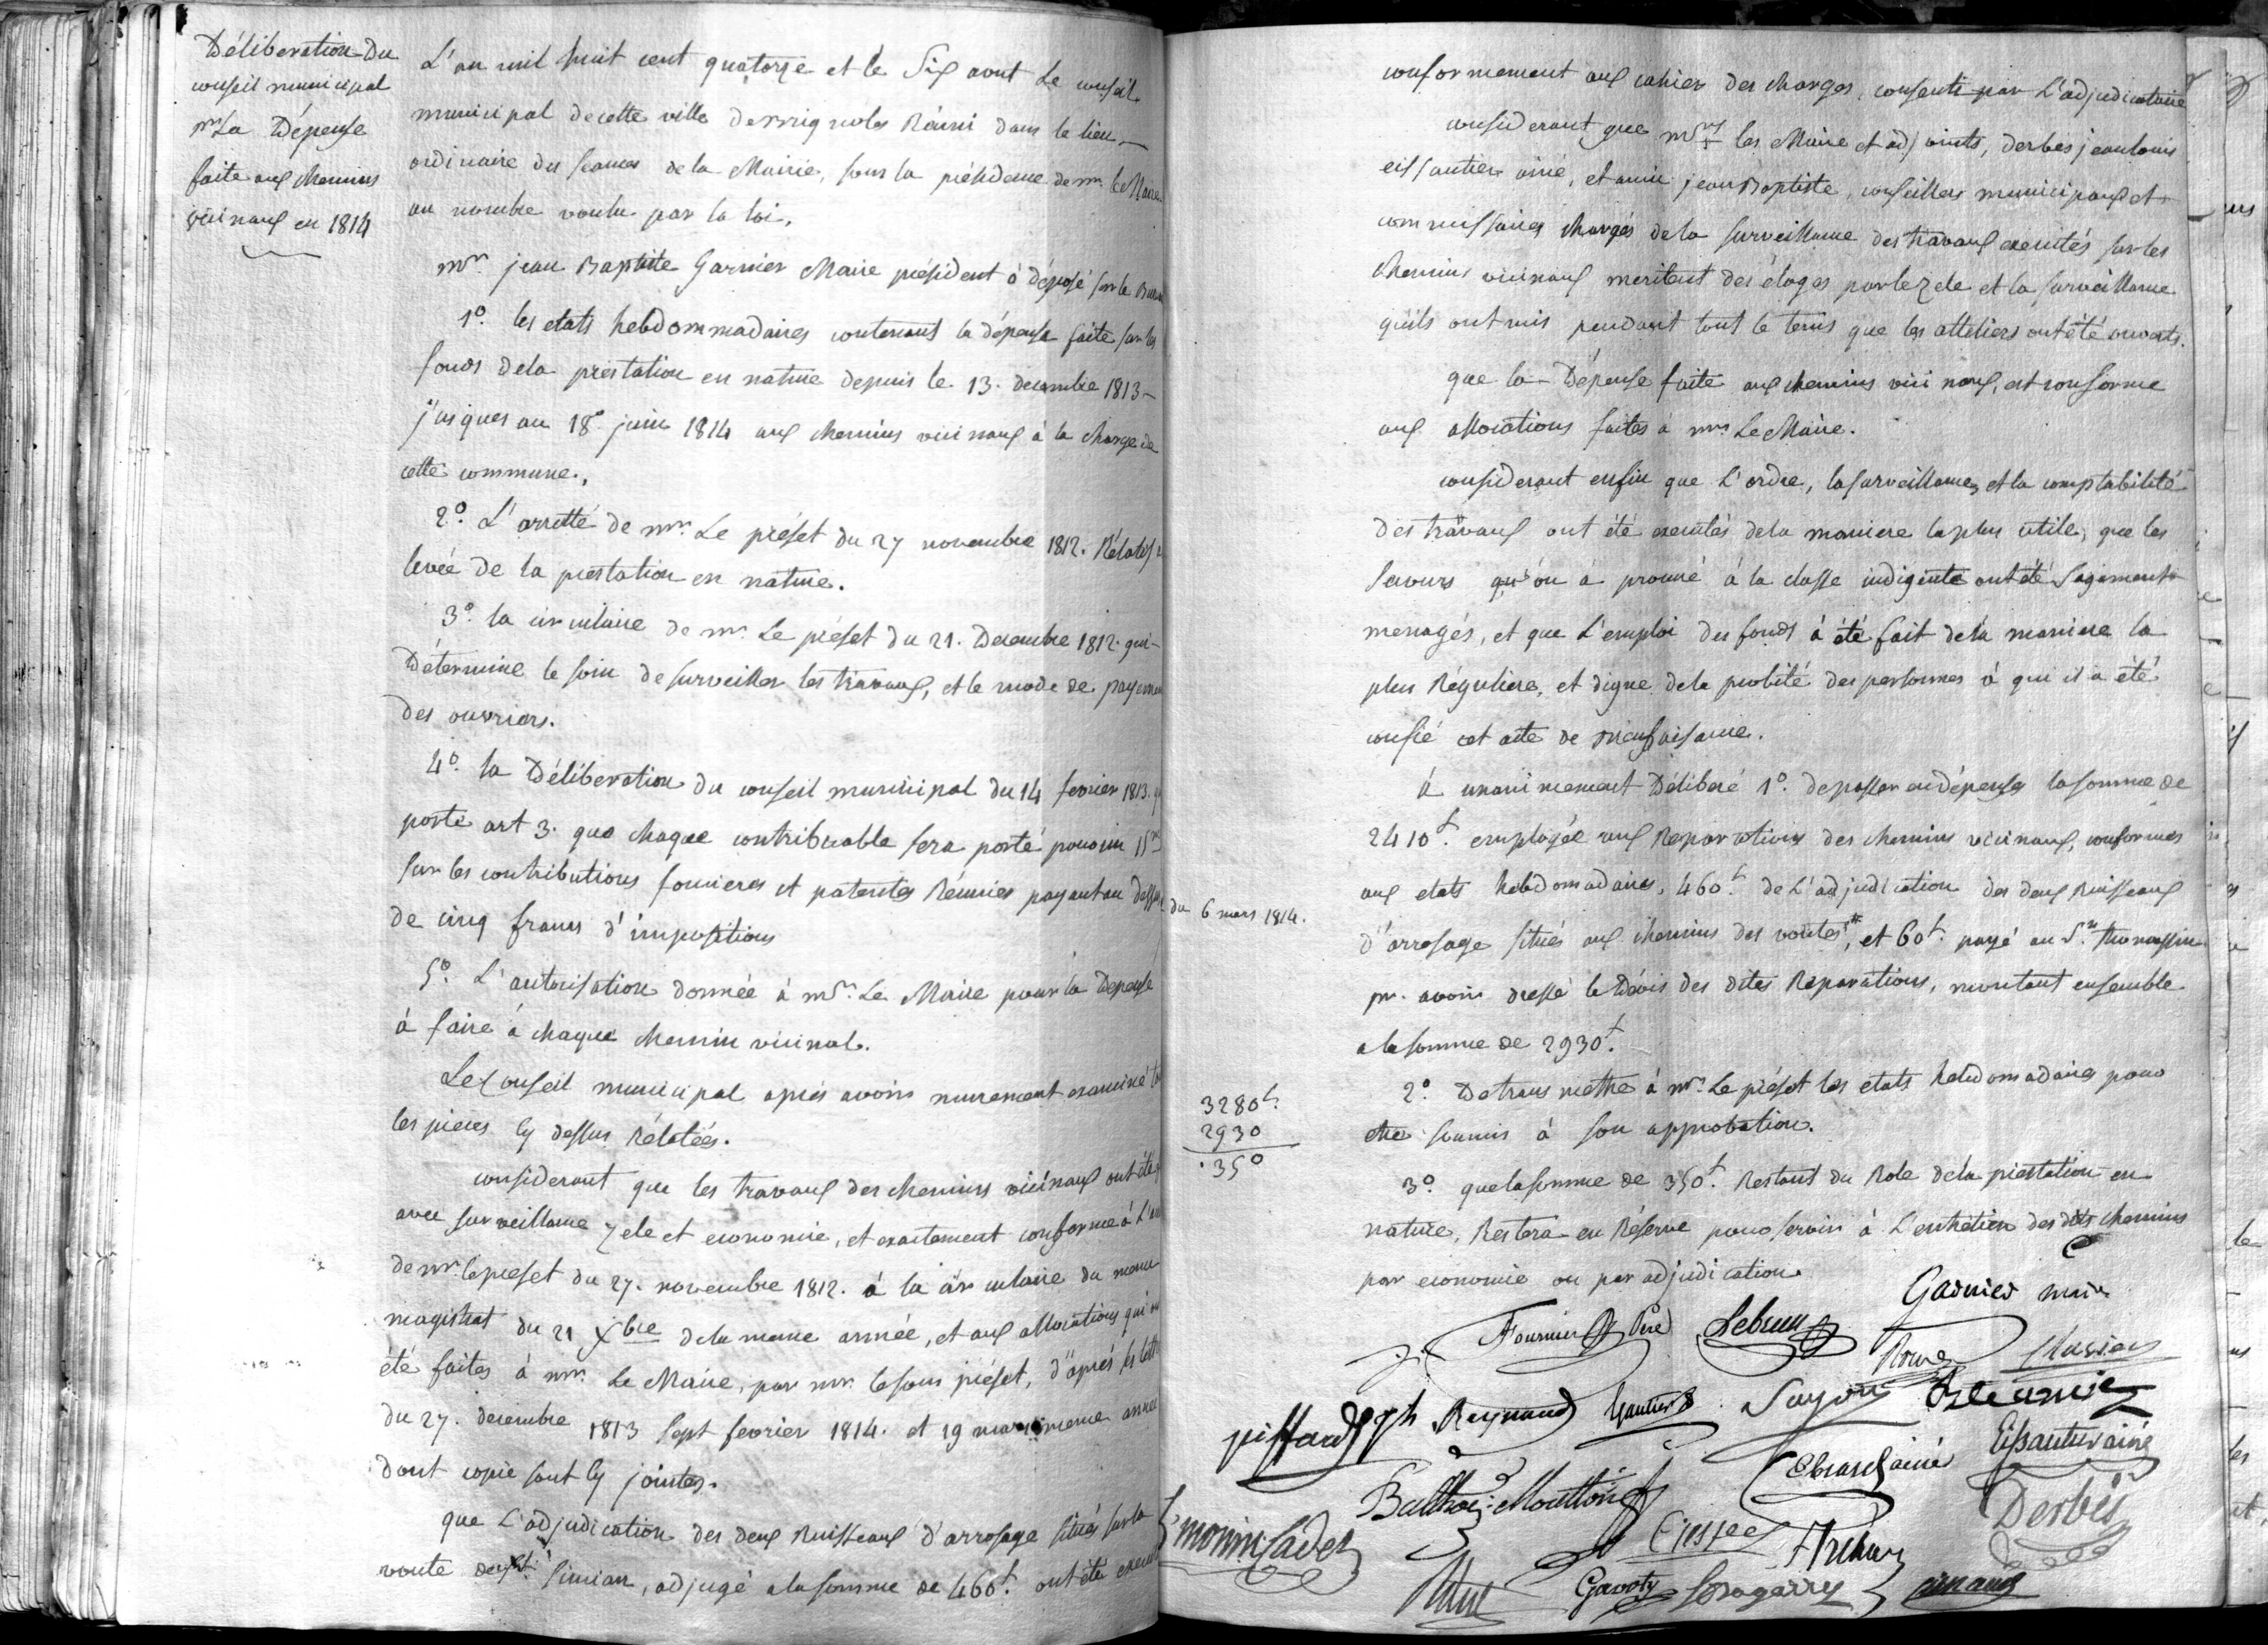 Déliberation Du
conseil municipal
pr La Dépense
faite aux chemins
vicinaux en 1814
L'an mil huit cent quatorze et le Six aout Le conseil
municipal de cette ville de Brignoles Réuni dans le lieu
ordinaire des seances de la Mairie, sous la présidence de mr. le Maire
au nombre voulu par la loi,
mr. jean Baptiste Garnier Maire président à déposé sur le Bureau
1º. les etats hebdommadaires contenant la dépense faite sur les
fonds de la prestation en nature depuis le 13. decembre 1813
jusques au 18. juin 1814 aux chemins vicinaux à la charge de
cette commune.,
2º. L'arretté de mr. Le préfet du 27 novembre 1812. Rélatif
levée de la prestation en nature.
3º. la circulaire de mr. Le préfet du 21. Decembre 1812. qui
Détermine le soin de surveiller les travaux, et le mode de payement
des ouvriers.
4º. la Déliberation du conseil municipal du 14 fevrier 1813.
porte art 3. que chaque contribuable sera porté pour un 15me
sur les contributions foncieres et patentes Réunies payant au dessus
de cinq francs d'impositions
5º. L'autorisation donnée à mr. Le Maire pour la Depense
à faire à chaque chemin vicinal.
Le Conseil municipal après avoir murement examiné
les pieces cy dessus Rélatées.
considerant que les travaux des chemins vicinaux ont été
avec surveillance zele et economie, et exactement conforme à L'
de mr. le prefet du 27. novembre 1812. à la circulaire du meme
magistrat du 21 Xbre de la meme année, et aux allocations qui
été faites à mr. Le Maire, par mr. le sous préfet, d'après les
du 27. decembre 1813 sept fevrier 1814. et 19 mars meme année
dont copie sont cy jointes.
que L'adjudication des deux Ruisseaux d'arrosage situés sur la
route de St. Simian, adjugé a la somme de 460f. ont été
conformement aux cahier des charges, consenti par L'adjudicataire
considerant que mrs les Maire et adjoints, derbes jean louis
eissautier ainé, et jean Baptiste, conseillers municipaux et
commissaires chargés de la surveillance des travaux executés sur les
chemins vicinaux meritent des éloges par le zele et la surveillance
qu'ils ont mis pendant tout le tems que les atteliers ont été ouverts.
que la Dépense faite aux chemins vicinaux, est conforme
aux allocations faites à mr. Le Maire.
considerant enfin que L'ordre, la surveillance, et la comptabilité
des travaux ont été executés de la maniere la plus utile, que les
secours qu'on à procuré à la classe indigente ont été sagement
menagés, et que L'emploi des fonds à été fait de la maniere la
plus Réguliere, et digne de la probité des personnes à qui il a été
confié cet acte de Bienfaisance.
à unanimement Délibéré 1º. de passer en dépense la somme de
2410f. employée aux Reparations des chemins vicinaux, conformes
aux etats hebdomadaires, 460f. de L'adjudication des deux Ruisseaux
du 6 mars 1814.
d'arrosage situés aux chemins des voutes #, et 60f. payé au Sr. thomassin
pr. avoir dressé le Dévis des dites Reparations, montant ensemble
a la somme de 2930f.
2º. De transmettre à mr. Le préfet les etats hebdomadaires pour
etre soumis à son approbation.
3280f.
2930
.350
3º. que la somme de 350f. Restant du Role de la prestation en
nature, Restera en Réserve pour servir à L'entretien des dits chemins
par economie ou par adjudication.
Garnier maire
Fournier Pere Lebrun
piffard jph Reynaud Gautier
Eissautier ainé
Balthzr. Moutton
Derbés
monin Cadet
Gavoty